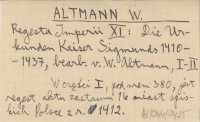 ALTMANN W.
Regesta Imperii XI: Die Ur-
kunden Kaiser Sigmunds 1410-
-1437, bearb. v. W. Altmann, I-II
W części I, pod nrem 380, jest
regest aktu zastawu 16 miast spis-
kich Polsce z r. 1412.